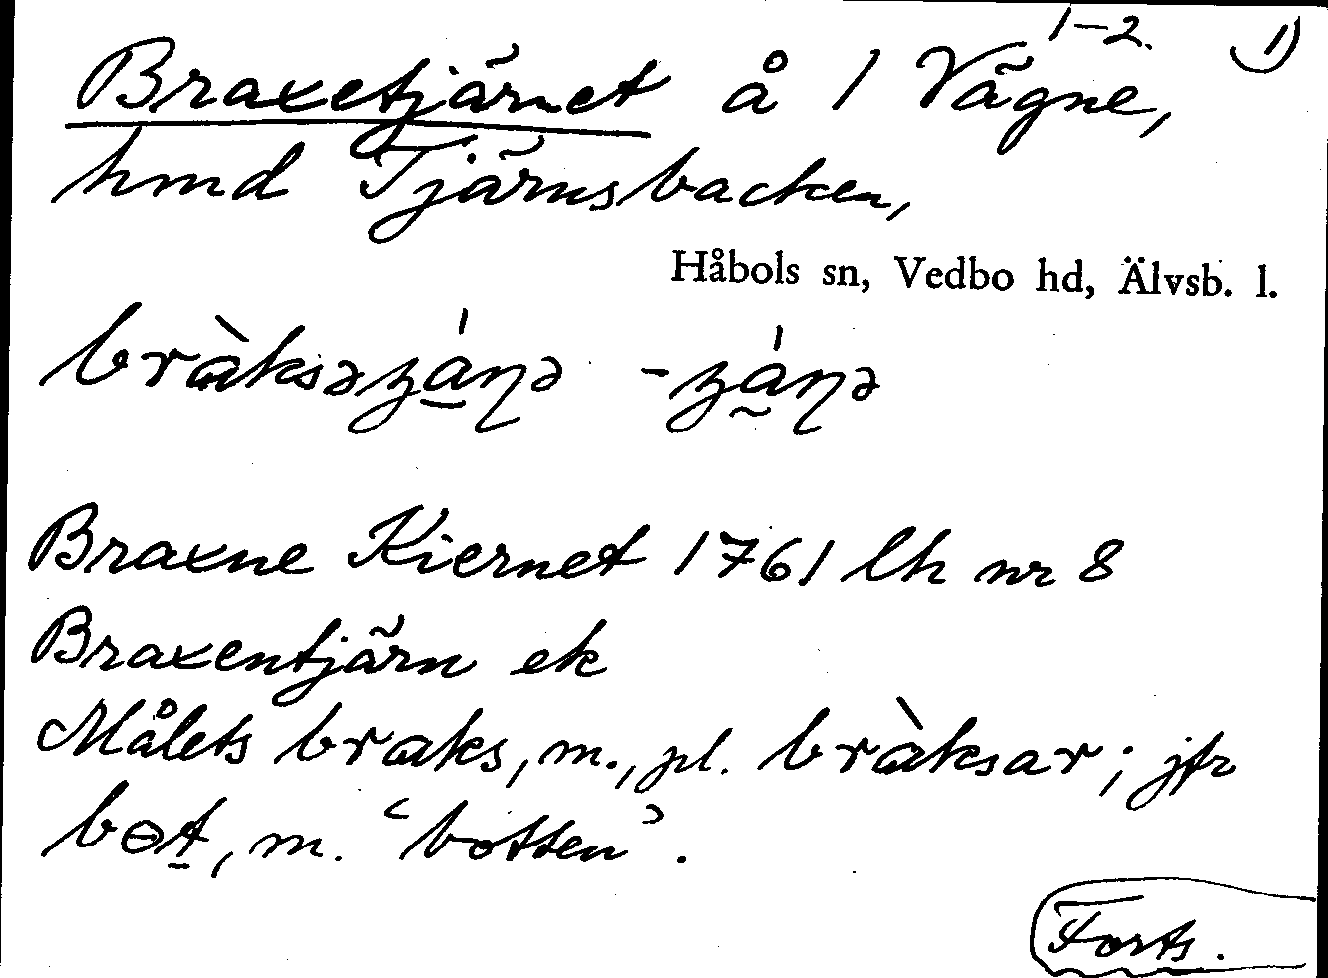 1-2. 1)
Braxetjärnet å 1 Vägne,
hmd Tjärnsbacken,
Håbols sn, Vedbo hd, Älvsb. l.
bràksəʒá̱ɳə -ʒá̰ɳə
Braxne Kiernet 1761 lh nr 8
Braxentjärn ek
Målets braks, m., pl. bràksar; jfr
bɵt̲, m. ‘botten’.
Forts.